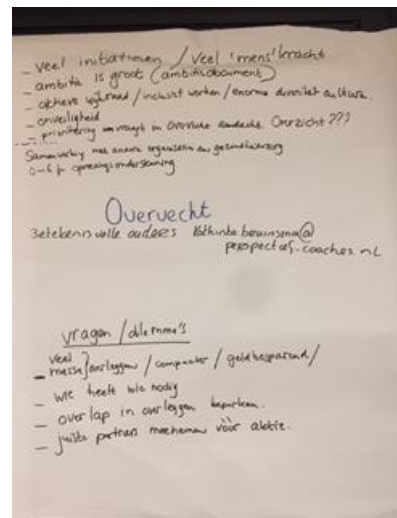 - veel initiatieven / veel 'mens' kracht
- ambitie is groot (ambitiedocument)
- actieve wijkraad / inclusief werken / enorme diversiteit cultuur.
- onveiligheid
- prioritering in Overvecht Overzicht ???
Samenwerking met andere organisaties en gezondheidszorg
0-6 jr opvoedingsondersteuning
Overvecht
Betekenisvolle ouderen @
perspectief-coaches.nl
vragen / dilemma's
- veel massa } overleggen / compacter / geldbesparend /
- wie heeft wie nodig
- overlap in overleggen beperken.
- juiste partners meenemen vòòr aktie.